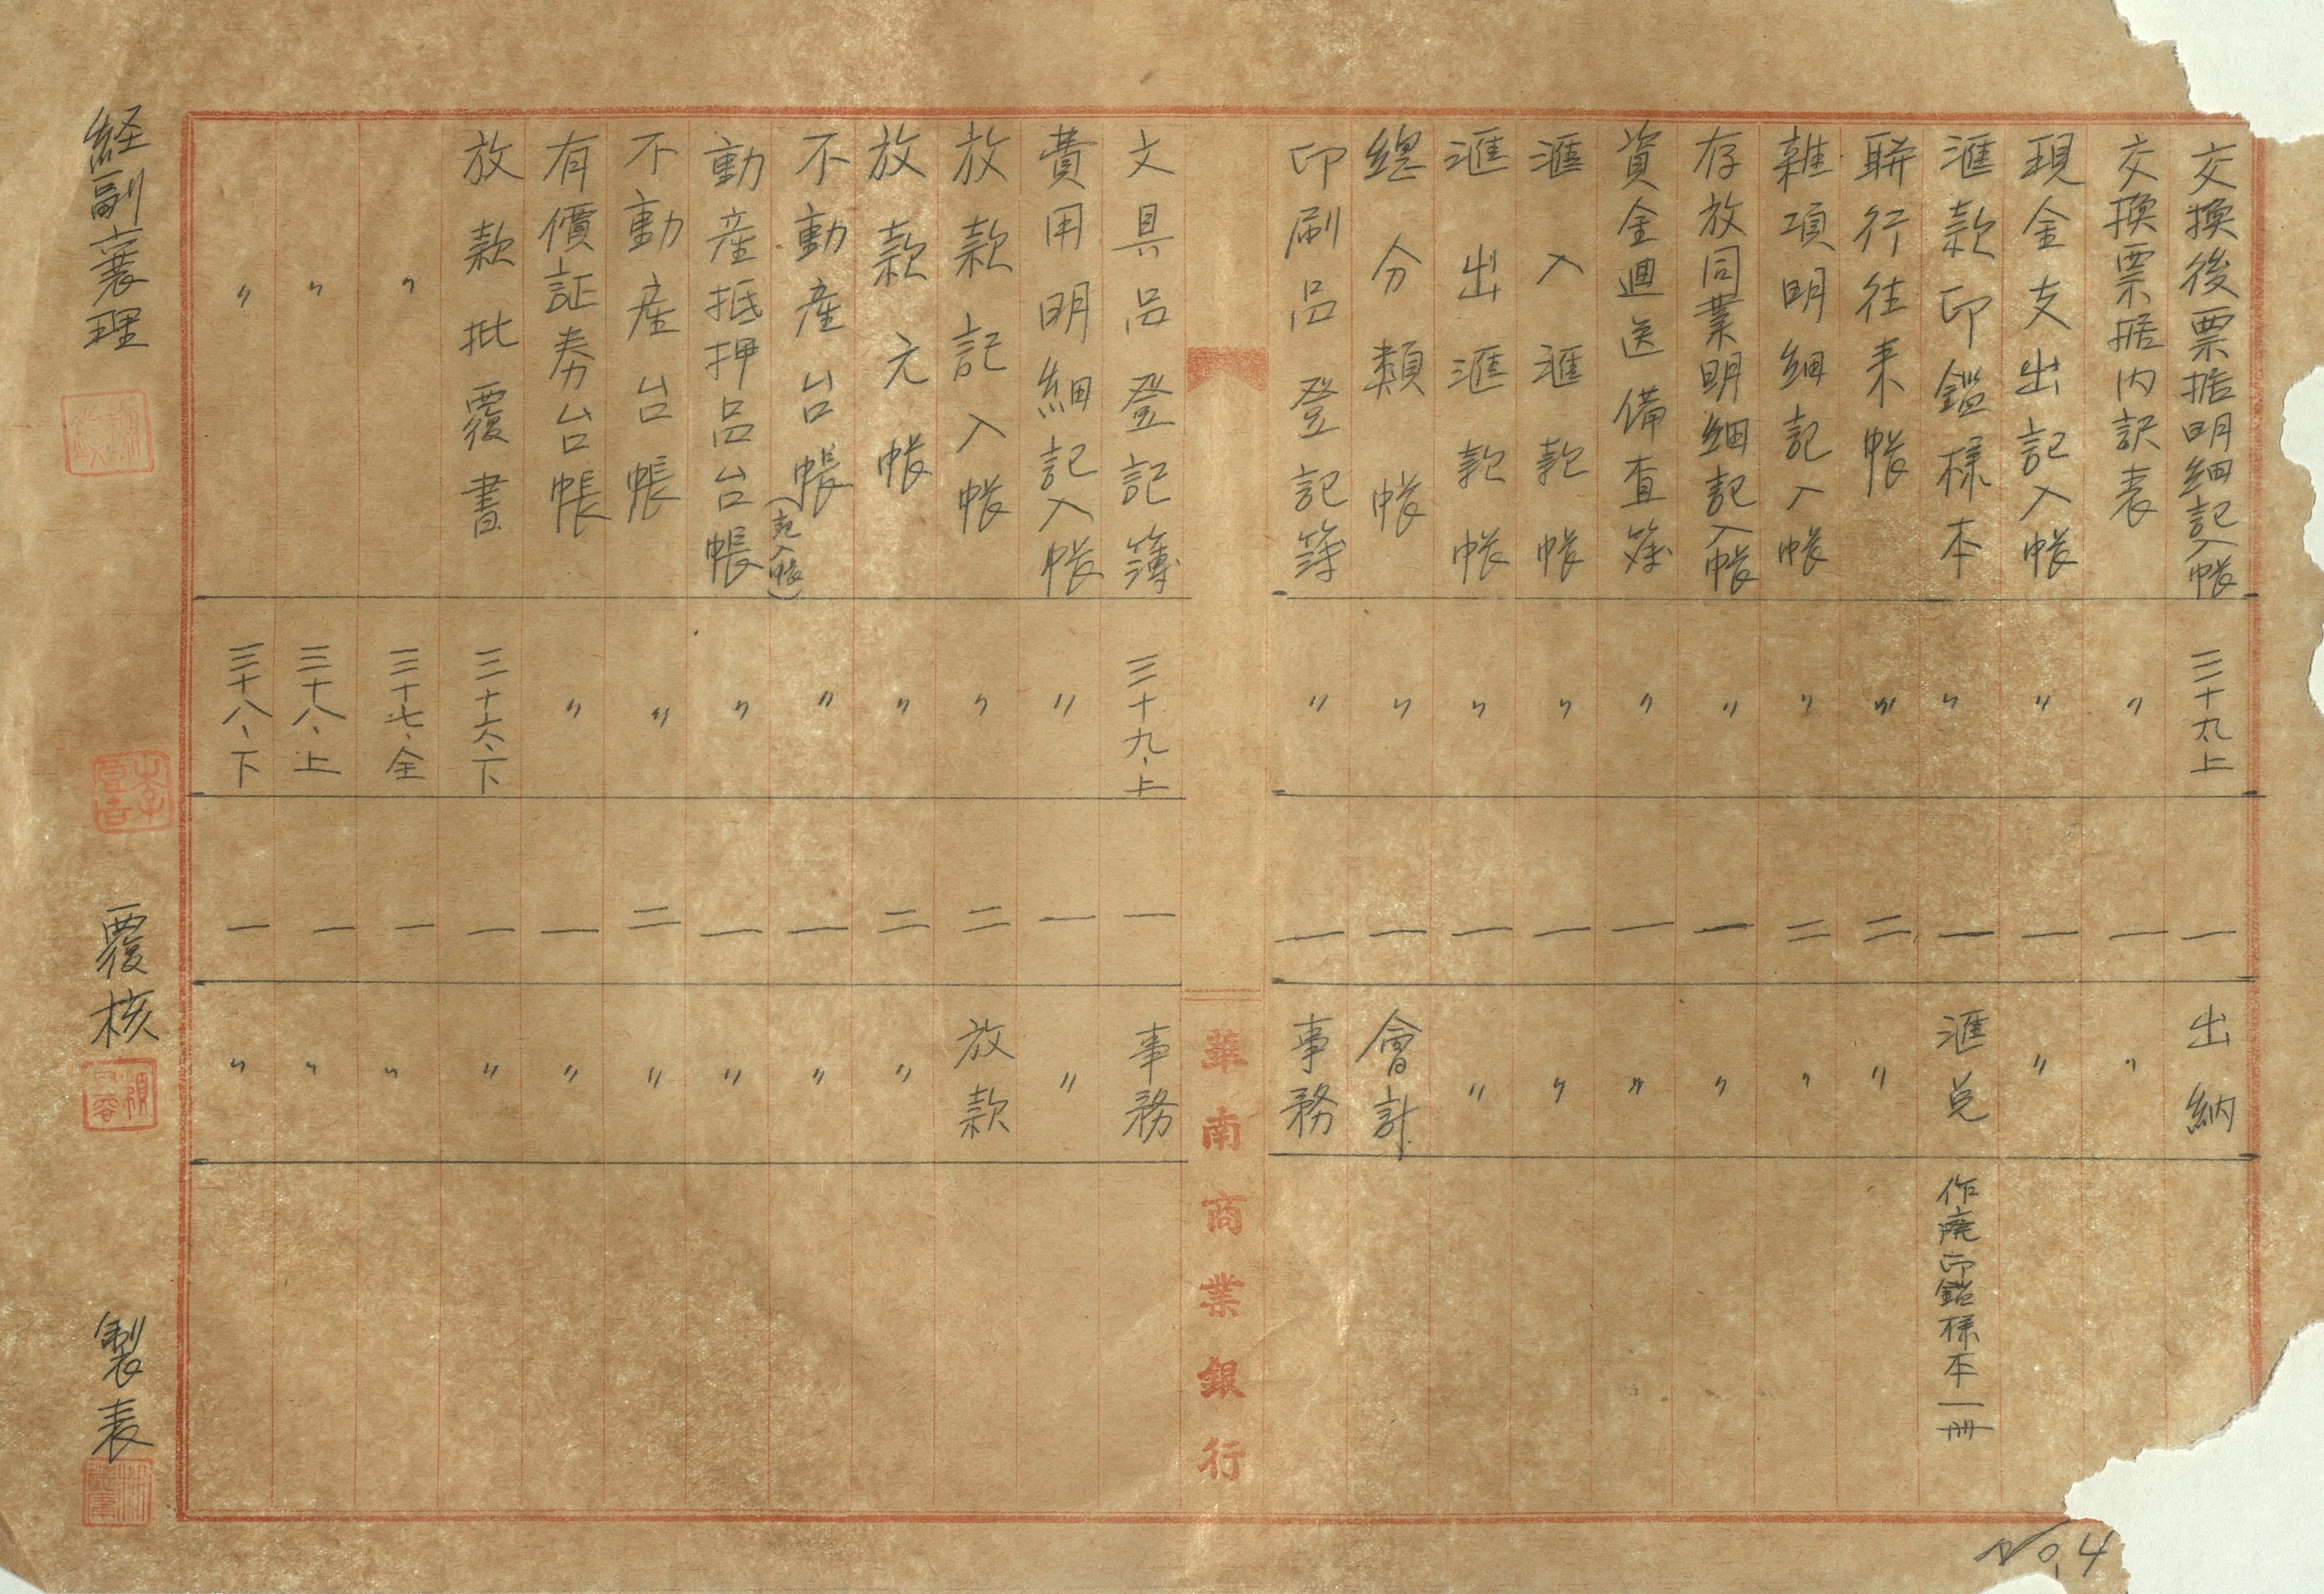 交換後票据明細記入帳 三十九、上 一 出納
交換票据内訳表 〃 一 〃
現金支出記入帳 〃 一 〃
滙款印鑑樣本 〃 一 滙兌 作廢印鑑樣本一冊
聯行往来帳 〃 二 〃
雜項明細記入帳 〃 二 〃
存放同業明細記入帳 〃 一 〃
資金迴送備查簿 〃 一 〃
滙入滙款帳 〃 一 〃
滙出滙款帳 〃 一 〃
總分類帳 〃 一 會計
印刷品登記簿 〃 一 事務
華南商業銀行
文具品登記簿 三十九、上 一 事務
費用明細記入帳 〃 一 〃
放款記入帳 〃 二 放款
放款元帳 〃 二 〃
不動産台帳(記入帳) 〃 一 〃
動産抵押品台帳 〃 一 〃
不動産台帳 〃 二 〃
有價証券台帳 〃 一 〃
放款批覆書 三十六、下 一 〃
〃 三十七、全 一 〃
〃 三十八、上 一 〃
〃 三十八、下 一 〃
経副襄理 覆核 製表
No.4